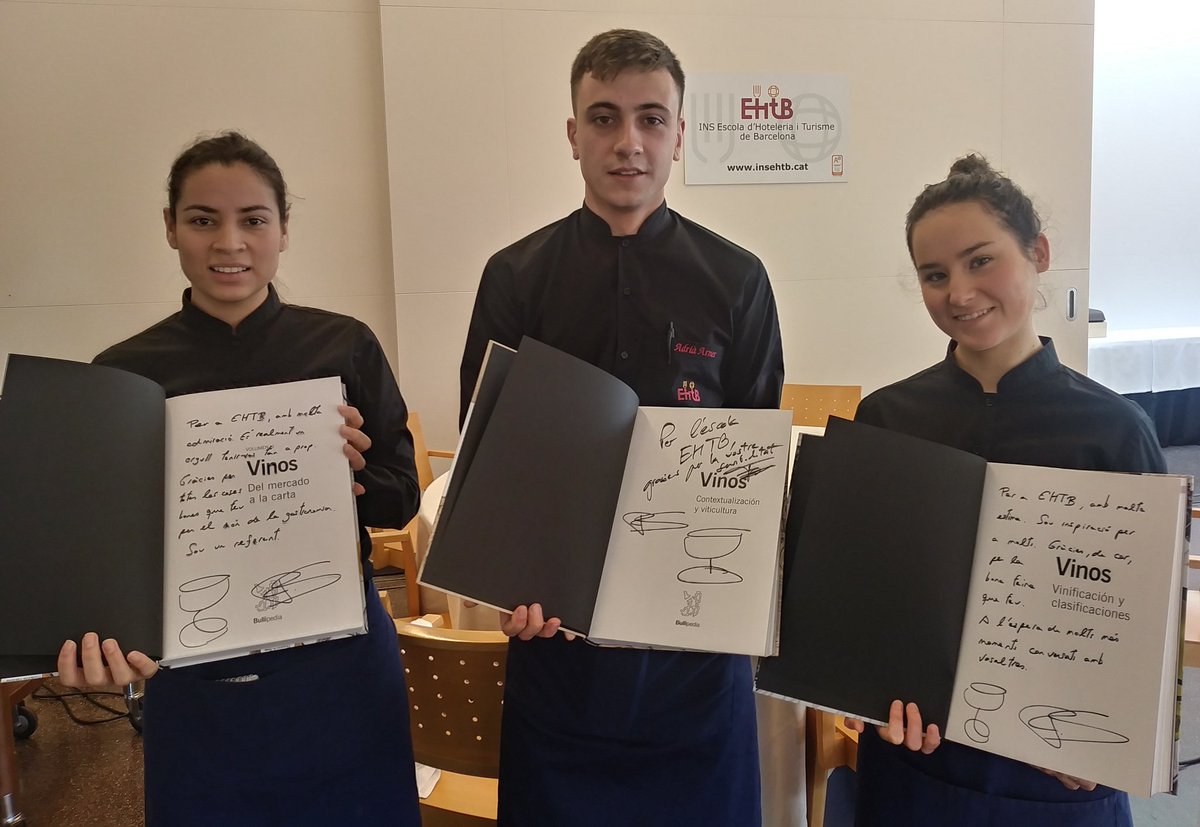 EHtB
INS Escola d'Hoteleria i Turisme
de Barcelona
www.insehtb.cat
Adrià
EHtB
Per a EHTB, amb molta
admiració. És realment un
orgull tenir-vos tan a prop.
Gràcies per
totes les coses
bones que feu
per el món de la gastronomia.
Sou un referent.
Vinos
Del mercado
a la carta
Bullipedia
Per l'escola
EHTB,
gràcies per la vostra
sensibilitat
Vinos
Contextualización
y viticultura
Bullipedia
Per a EHTB, amb molta
estima. Sou inspiració per
a molts. Gràcies, de cor,
per la
bona feina
que feu.
A l'espera de molts més
moments conversats amb
vosaltres.
Vinos
Vinificación y
clasificaciones